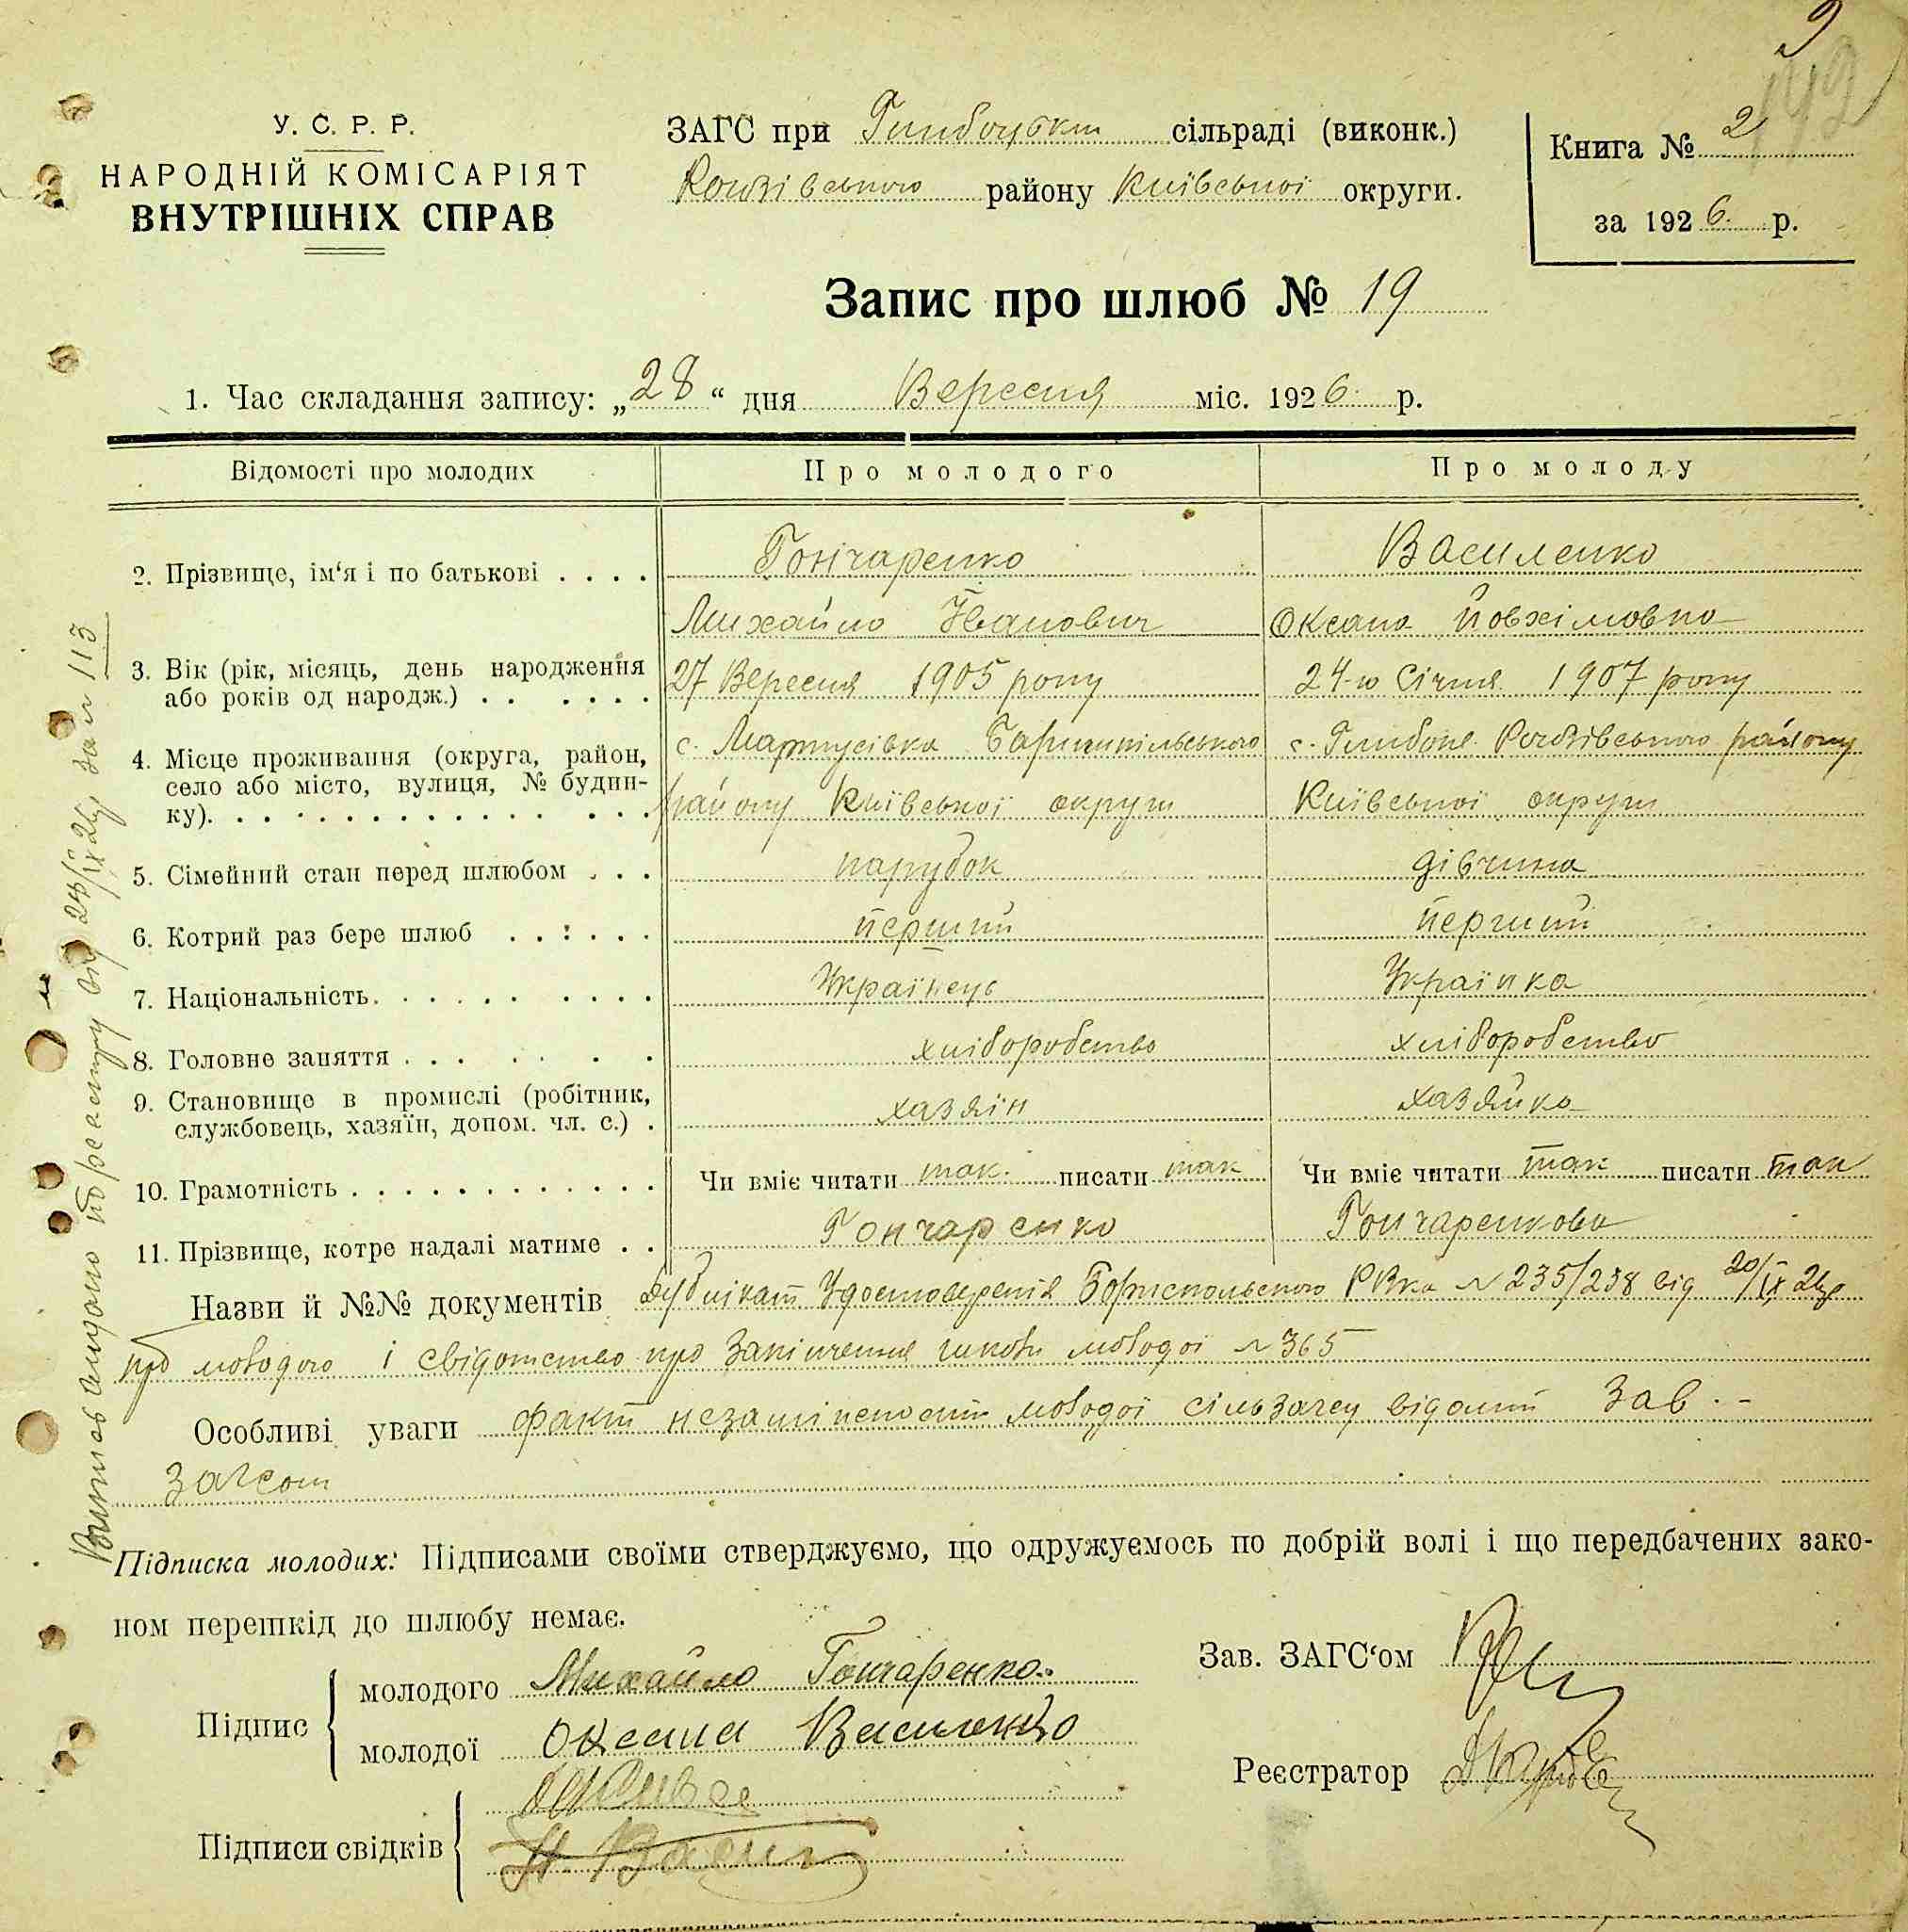 9
142
У. С. Р. Р.
НАРОДНІЙ КОМІСАРІЯТ
ВНУТРІШНІХ СПРАВ
ЗАГС при Глибоцькій сільраді (виконк.)
району Київської округи.
Книга № 2
за 1926 р.
Запис про шлюб № 19
1. Час складання запису: „28“ дня Вересня міс. 1926 р.
Відомості про молодих Про молодого Про молоду
2. Прізвище, ім‘я і по батькові . . . . Гончаренко Василенко
Михайло Іванович Оксана Йовхімовна
3. Вік (рік, місяць, день народження 27 Вересня 1905 року 24-го Січня 1907 року
або років од народж.) . . . . . .
4. Місце проживання (округа, район, с. Мартусівка Баришпільського с. Глибоке району
село або місто, вулиця, № будин-
ку). . . . . . . . . . . . . . . . району Київської округи Київської округи
5. Сімейний стан перед шлюбом . . . парубок дівчина
6. Котрий раз бере шлюб . . : . . . перший перший
7. Національність. . . . . . . . . . Українець Українка
8. Головне заняття . . . . . . . хліборобство хліборобство
9. Становище в промислі (робітник, хазяїн хазяйка
службовець, хазяїн, допом. чл. с.) .
10. Грамотність . . . . . . . . . . . . Чи вміє читати так. писати так Чи вміє читати так писати так
11. Прізвище, котре надалі матиме . . Гончаренко Гончаренкова
Назви й №№ документів Дублікат Удостоверенія Бориспольського РВка № 235/238 від 20/IX 26р
про молодого і свідотство про закінчення школи молодої № 365
Особливі уваги факт молодої сільзагсу відомий Зав. -
Загсом
Підписка молодих: Підписами своїми стверджуємо, що одружуємось по добрій волі і що передбачених зако-
ном перешкід до шлюбу немає.
Підпис молодого Михайло Гончаренко.
молодої Оксана Василенко
Підписи свідків
Зав. ЗАГС‘ом
Реєстратор
Витяг видано по реєстру від 28/IX 26р за № 113